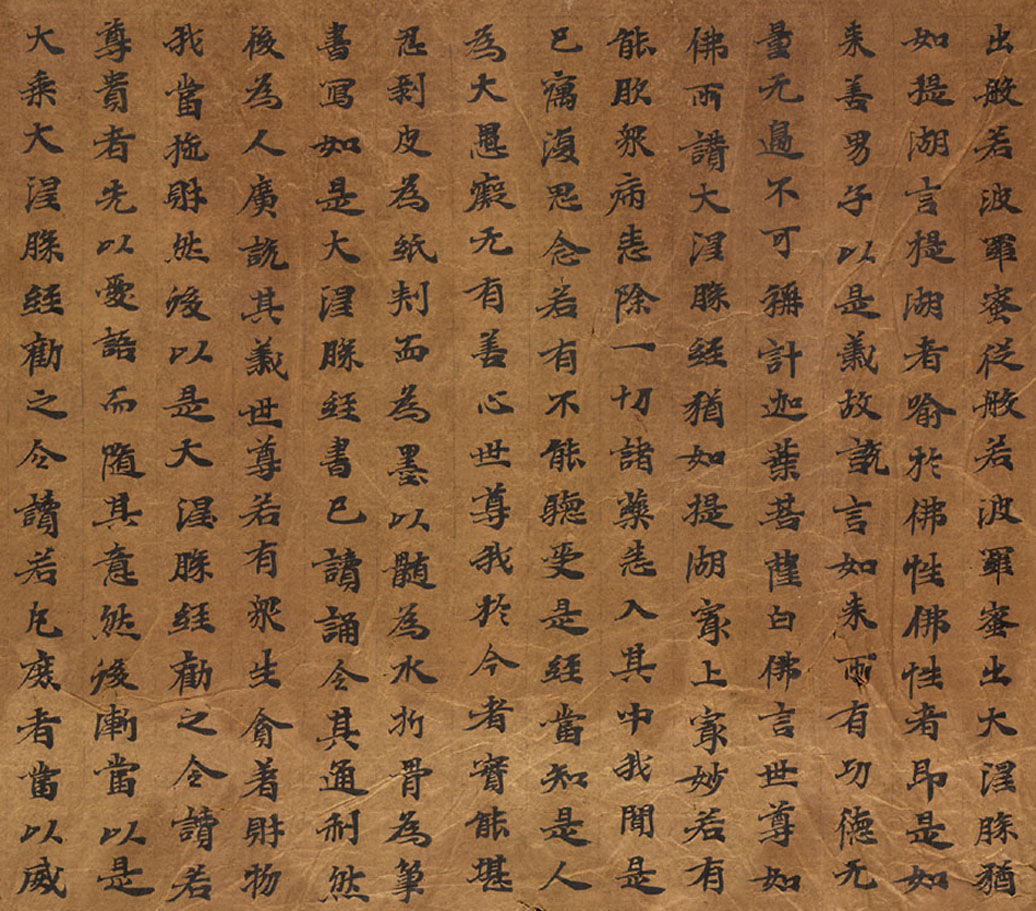 出般若波羅蜜従般若波羅蜜出大涅槃猶
如提湖言提湖者喻於佛性佛性者即是如
来善男子以是義故說言如来所有功德无
量无邊不可稱計迦葉菩薩白佛言世尊如
佛所讚大涅槃經猶如提湖冣上冣妙若有
能飲衆病悉除一切諸藥悉入其中我聞是
已竊復思念若有不能聽受是經當知是人
為大愚癡无有善心世尊我於今者實能堪
忍剥皮為紙刺血為墨以髓為水折骨為筆
書寫如是大涅槃經書已讀誦令其通利然
後為人廣說其義世尊若有衆生貪著財物
我當施財然後以是大涅槃經勸之令讀若
尊貴者先以愛語而隨其意然後漸當以是
大乗大涅槃經勸之令讀若凡庶者當以威